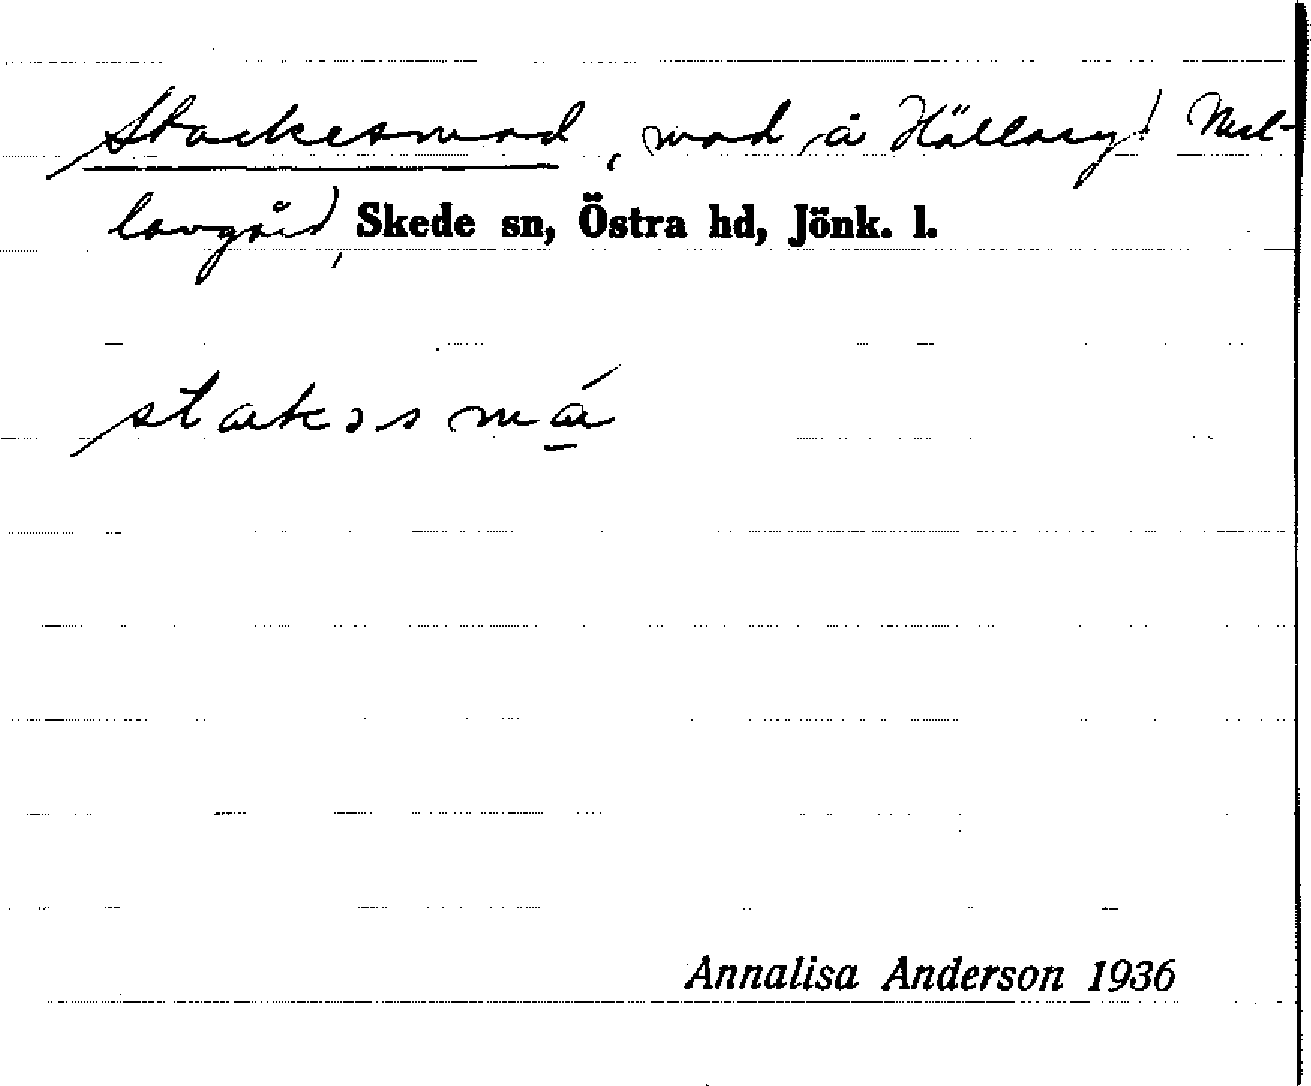 Stackesmad, mad å Hälleryd Mel-
langård, Skede sn, Östra hd, Jönk. l.
stakəs má
Annalisa Anderson 1936